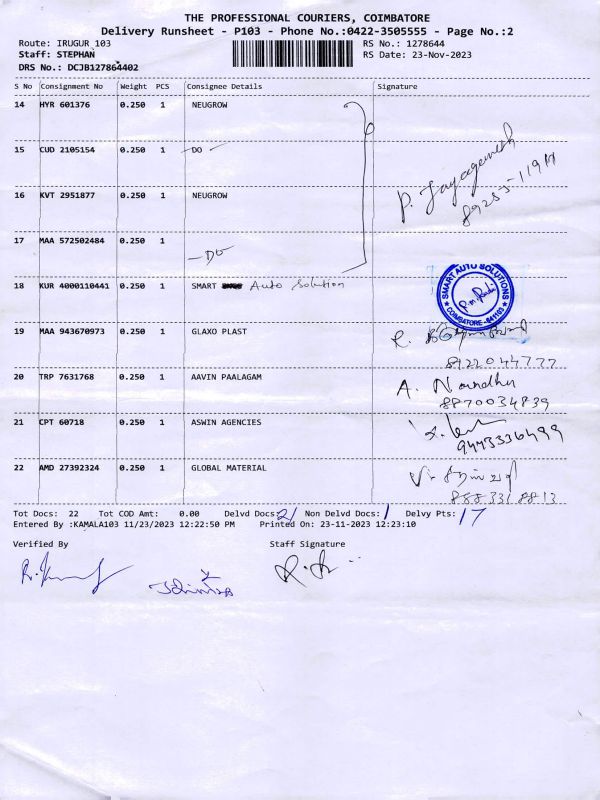 THE PROFESSIONAL COURIERS, COIMBATORE
Delivery Runsheet - P103 - Phone No.:0422-3505555 - Page No.:2
Route: IRUGUR 103
RS No.: 1278644
Staff: STEPHAN
RS Date: 23-Nov-2023
DRS No.: DCJB127864402
S No Consignment No Weight PCS Consignee Details Signature
14 HYR 601376 0.250 1 NEUGROW
15 CUD 2105154 0.250 1 -DO-
P. Jayaganesh
16 KVT 2951877 0.250 1 NEUGROW
17 MAA 572502484 0.250 1
-DO-
18 KUR 4000110441 0.250 1 SMART Auto Solution
SMART AUTO SOLUTIONS
COIMBATORE - 641103
19 MAA 943670973 0.250 1 GLAXO PLAST
8422044777
20 TRP 7631768 0.250 1 AAVIN PAALAGAM A. Nandhu
8870034839
21 CPT 60718 0.250 1 ASWIN AGENCIES
9443336499
22 AMD 27392324 0.250 1 GLOBAL MATERIAL
888 331 8813
Tot Docs: 22 Tot COD Amt: 0.00 Delvd Docs: 21 Non Delvd Docs: 1 Delvy Pts: 17
Entered By :KAMALA103 11/23/2023 12:22:50 PM Printed On: 23-11-2023 12:23:10
Verified By Staff Signature